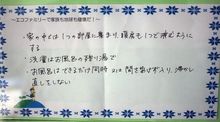 ～エコファミリーで家族も地球も健康だ！～
・家の中では1つの部屋に集まり、暖房も1つで済むように
する
・洗濯はお風呂の残り湯で
・お風呂はできるだけ同時 又は 間を空けず入り、沸かし
直してしない